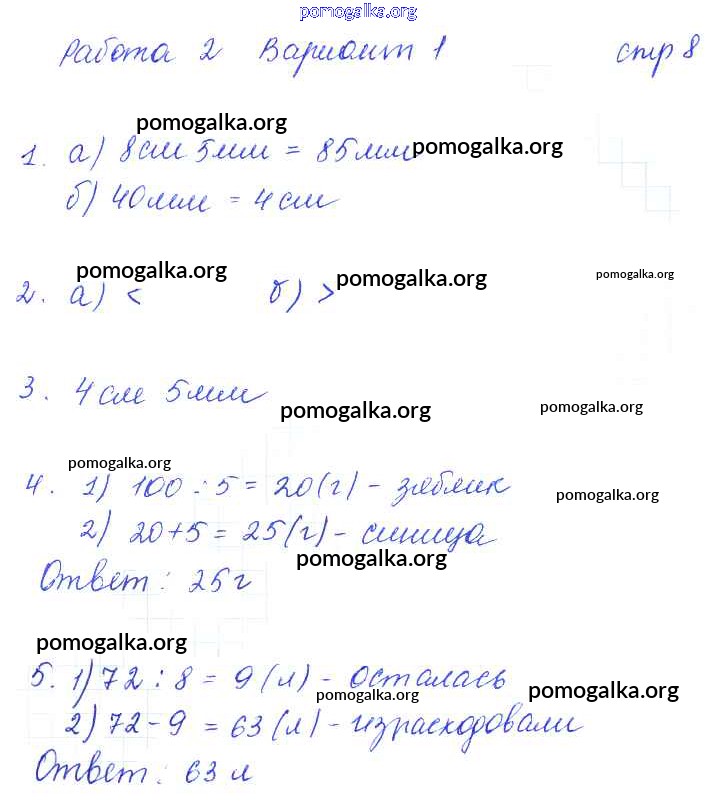 pomogalka.org
Работа 2 Вариант 1 стр 8
pomogalka.org
1. а) 8см 5мм = 85мм pomogalka.org
б) 40мм = 4см
pomogalka.org pomogalka.org pomogalka.org
2. а) < б) >
3. 4см 5мм
pomogalka.org pomogalka.org
pomogalka.org
4. 1) 100 : 5 = 20(г) - зяблик
pomogalka.org
2) 20+5 = 25(г) - синица
pomogalka.org
Ответ: 25г
pomogalka.org
5. 1) 72 : 8 = 9(л) - осталась
pomogalka.org pomogalka.org
2) 72 - 9 = 63(л) - израсходовали
Ответ: 63 л